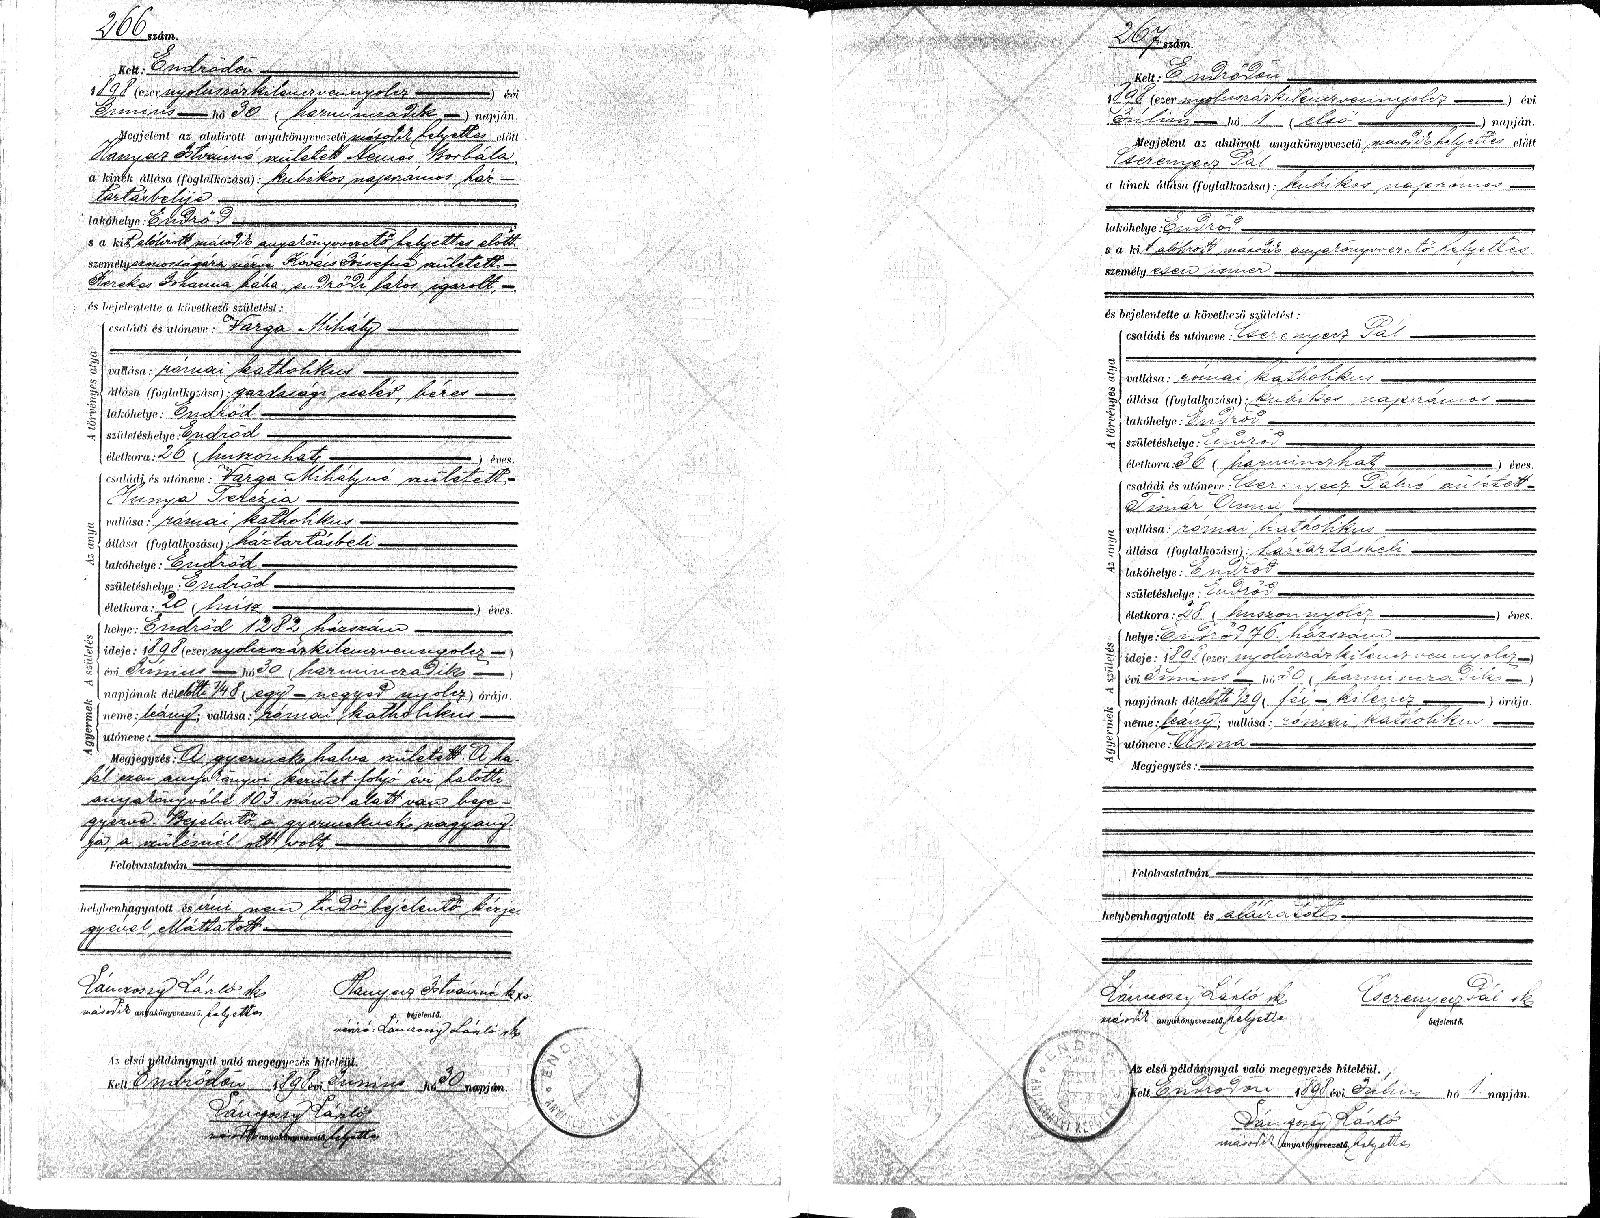 266 szám.
Kelt: Endrődön
1898 (ezer nyolcszázkilenczvennyolcz) évi
Június hó 30 (harminczadik) napján.
Megjelent az alulirott anyakönyvvezető második helyettes előtt
Hanyecz Istvánné született Nemes Borbála,
a kinek állása (foglalkozása): kubikos napszámos ház-
tartásbelije
lakóhelye: Endrőd
s a kit alólirott második anyakönyvvezető helyettes előtt
személyazonosságára nézve Kovács Józsefné született
Kerekes Johanna bába, endrődi lakos igazolt,
és bejelentette a következő születést:
A törvényes atya
családi és utóneve: Varga Mihály
vallása: római katholikus
állása (foglalkozása): gazdasági cseléd, béres
lakóhelye: Endrőd
születéshelye: Endrőd
életkora: 26 (huszonhat) éves.
Az anya
családi és utóneve: Varga Mihályné született
Hunya Terézia
vallása: római katholikus
állása (foglalkozása): háztartásbeli
lakóhelye: Endrőd
születéshelye: Endrőd
életkora: 20 (húsz) éves.
A születés
helye: Endrőd 1282 házszám
ideje: 1898 (ezer nyolcszázkilenczvennyolcz)
évi Június hó 30 (harminczadik)
napjának délelőtti 1/48 (egy - negyed nyolcz) órája.
A gyermek
neme: leány; vallása: római katholikus
utóneve:
Megjegyzés: A gyermek halva született. A ha-
lál ezen anyakönyvi kerület folyó évi halotti
anyakönyvébe 103. szám alatt van beje-
gyezve. Bejelentő a gyermeknek nagyany-
ja, a szülésnél ott volt.
Felolvastatván
helybenhagyatott és írni nem tudó bejelentő kézje-
gyével elláttatott.
Lánczosy László sk Hanyecz Istvánné kxv
második anyakönyvvezető helyettes bejelentő.
névíró: Lánczosy László sk
Az első példánynyal való megegyezés hiteléül.
Kelt Endrődön 1898 évi Június hó 30 napján.
Lánczosy László
második anyakönyvvezető helyettes
267 szám.
Kelt: Endrődön
1898 (ezer nyolcszázkilenczvennyolcz) évi
Július hó 1 (első) napján.
Megjelent az alulirott anyakönyvvezető második helyettes előtt
Cserenyecz Pál
a kinek állása (foglalkozása): kubikos napszámos
lakóhelye: Endrőd
s a kit alólirott második anyakönyvvezető helyettes
személyesen ismer
és bejelentette a következő születést:
A törvényes atya
családi és utóneve: Cserenyecz Pál
vallása: római katholikus
állása (foglalkozása): kubikos napszámos
lakóhelye: Endrőd
születéshelye: Endrőd
életkora: 36 (harminczhat) éves.
Az anya
családi és utóneve: Cserenyecz Pálné született
Timár Anna
vallása: római katholikus
állása (foglalkozása): háztartásbeli
lakóhelye: Endrőd
születéshelye: Endrőd
életkora: 28 (huszonnyolcz) éves.
A születés
helye: Endrőd 76. házszám
ideje: 1898 (ezer nyolcszázkilenczvennyolcz)
évi Június hó 30 (harminczadik)
napjának délelőtti 1/29 (fél - kilencz) órája.
A gyermek
neme: leány; vallása: római katholikus
utóneve: Anna
Megjegyzés:
Felolvastatván
helybenhagyatott és aláiratott
Lánczosy László sk Cserenyecz Pál sk
második anyakönyvvezető helyettes bejelentő.
Az első példánynyal való megegyezés hiteléül.
Kelt Endrődön 1898 évi Július hó 1. napján.
Lánczosy László
második anyakönyvvezető helyettes